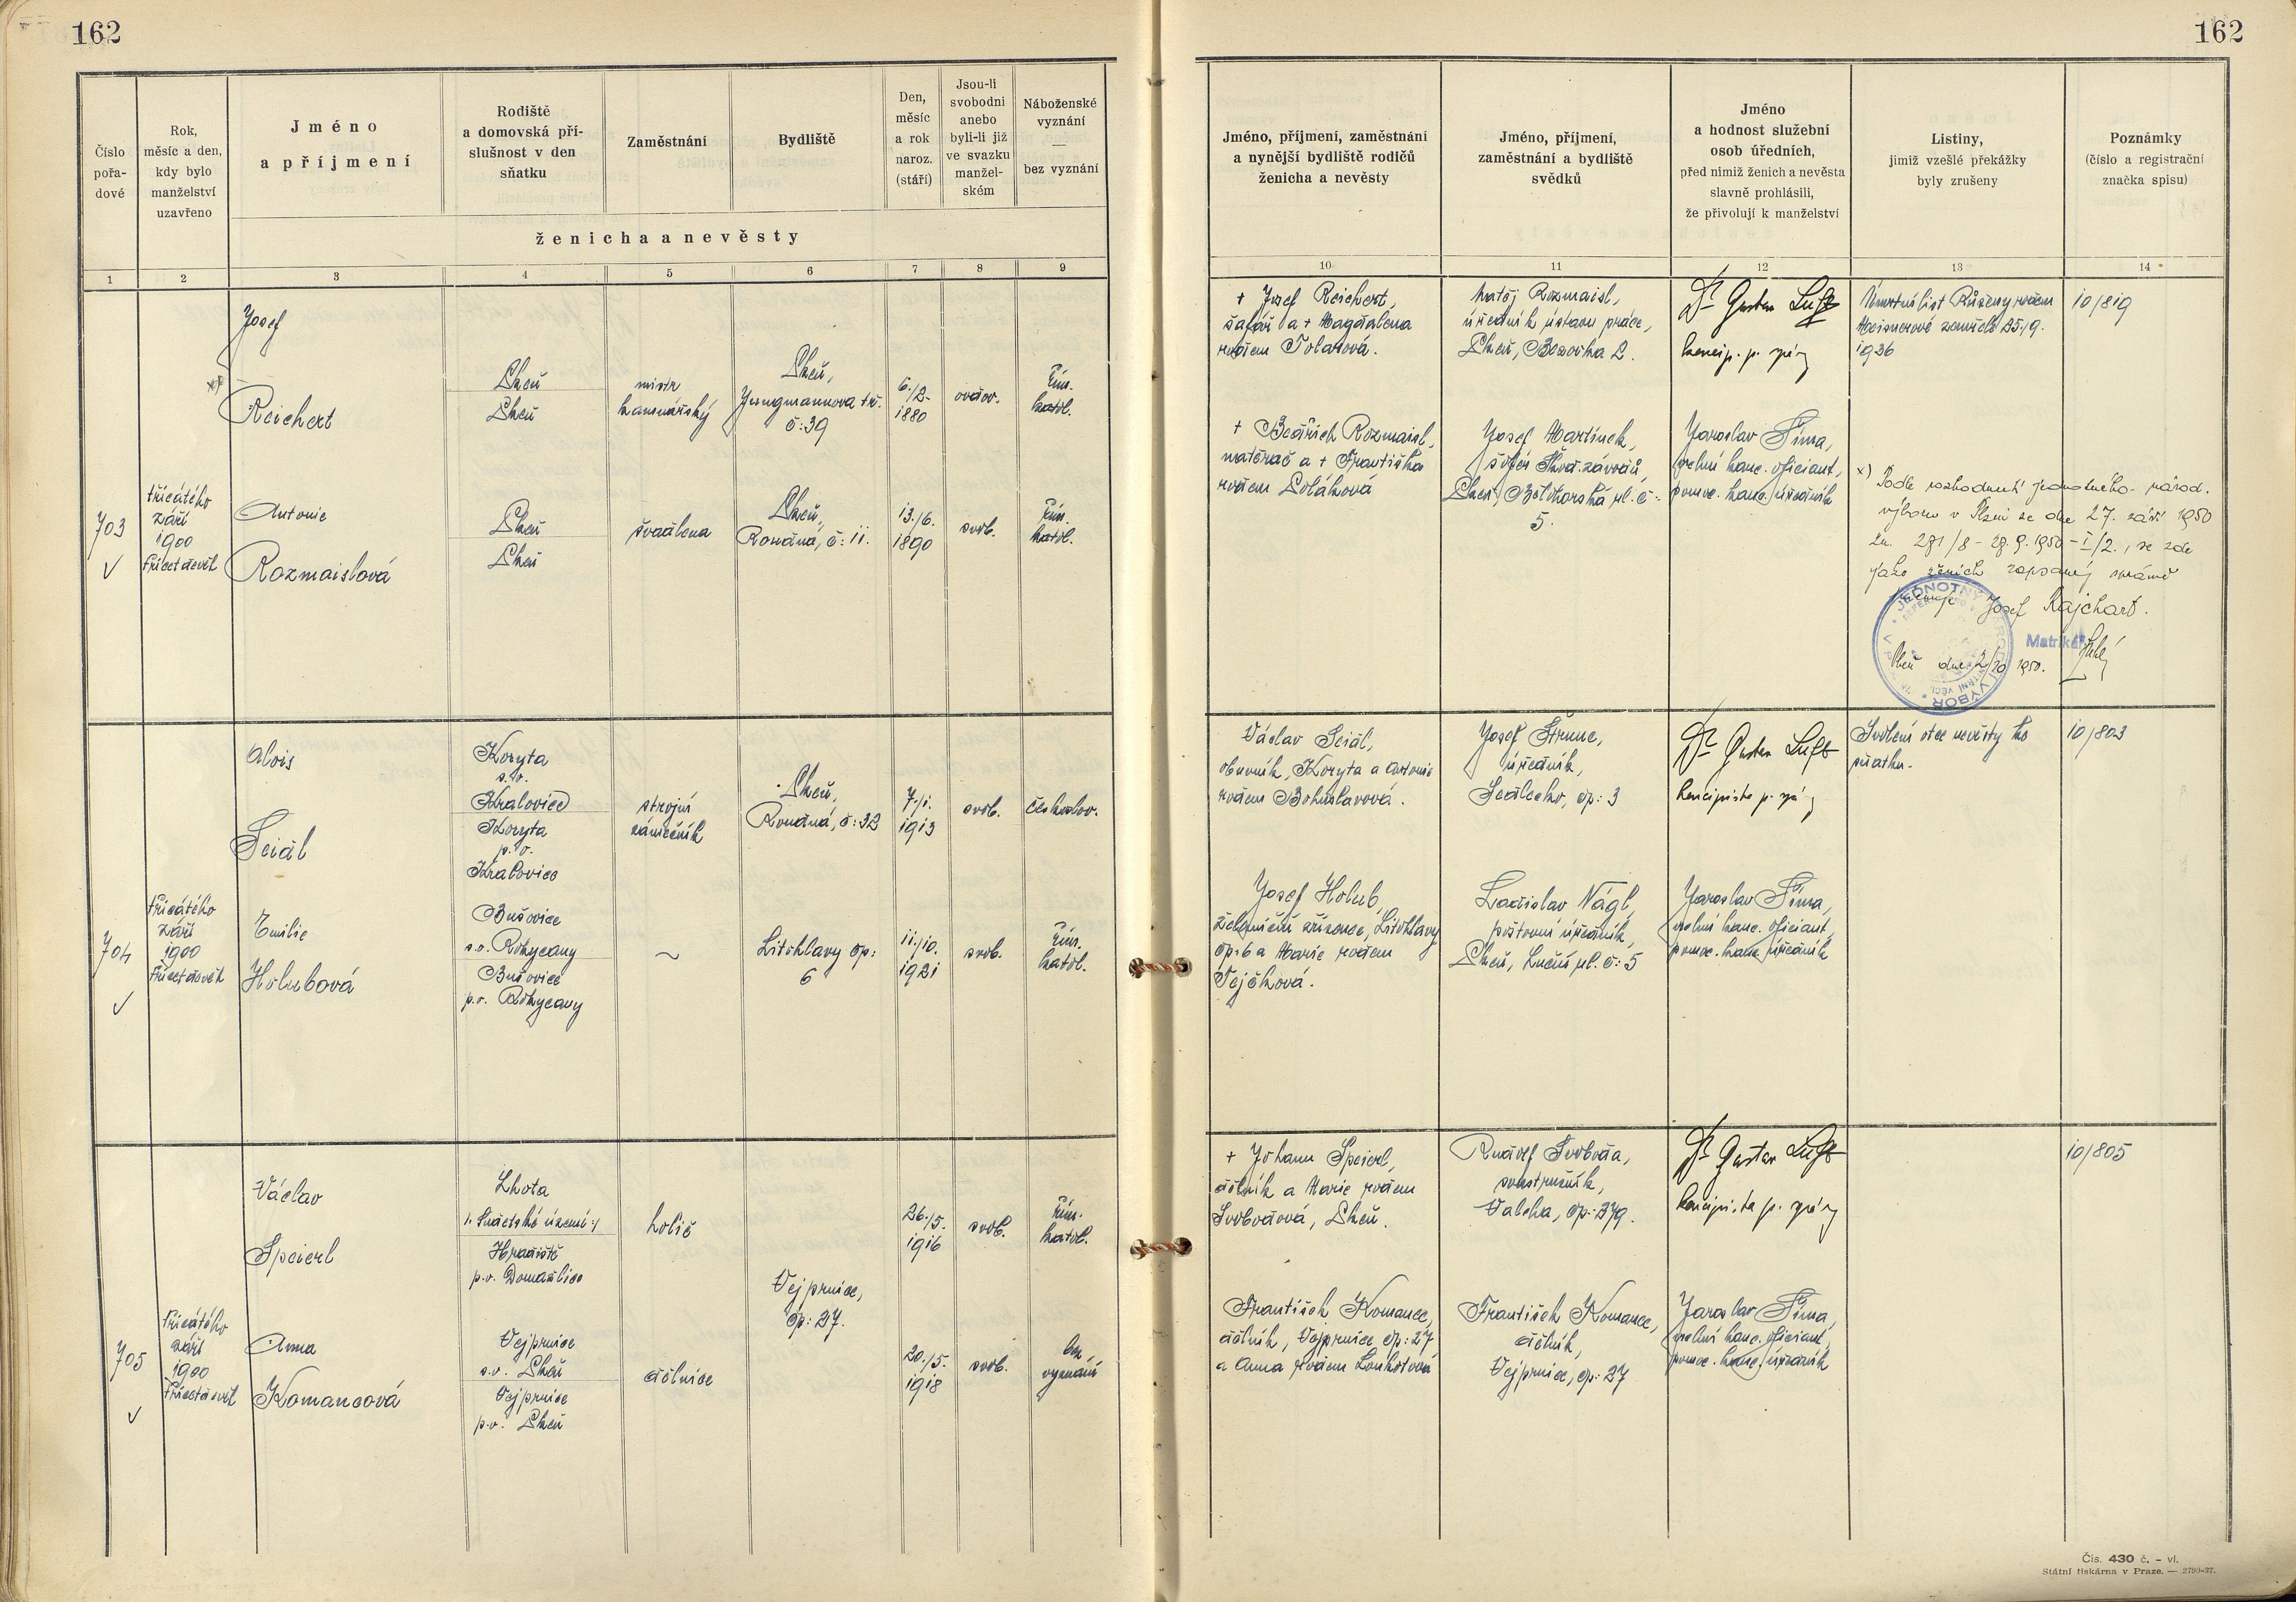 162
162
Číslo
pořa-
dové
Rok,
měsíc a den,
kdy bylo
manželství
uzavřeno
Jméno
a příjmení
Rodiště
a domovská pří-
slušnost v den
sňatku
Zaměstnání
Bydliště
Den,
měsíc
a rok
naroz.
(stáří)
Jsou-li
svobodni
anebo
byli-li již
ve svazku
manžel-
ském
Náboženské
vyznání
—
bez vyznání
ženicha a nevěsty
1 2 3 4 5 6 7 8 9
Jméno, příjmení, zaměstnání
a nynější bydliště rodičů
ženicha a nevěsty
Jméno, příjmení,
zaměstnání a bydliště
svědků
Jméno
a hodnost služební
osob úředních,
před nimiž ženich a nevěsta
slavně prohlásili,
že přivolují k manželství
Listiny,
jimiž vzešlé překážky
byly zrušeny
Poznámky
(číslo a registrační
značka spisu)
10 11 12 13 14
703
třicátého
září
1900
třicetdevět
Josef
Reichert
Plzeň
Plzeň
mistr
kamnářský
Plzeň,
Jungmannova tř.
č: 39
6./2.
1880
ovdov.
řím.
katol.
Antonie
Rozmaislová
Plzeň
Plzeň
švadlena
Plzeň,
Roudná, č: 11.
13./6.
1890
svob.
řím.
katol.
+ Josef Reichert,
šafář a + Magdalena
rodem Tolarová.
+ Bedřich Rozmaisl,
natěrač a + Františka
rodem Poláková
Matěj Rozmaisl,
úředník ústavu práce,
Plzeň, Bezovka 2.
Josef Martínek,
šofér Škod. závodů,
Plzeň, ul. č:
5.
Dr Gustav Luft
koncip. p. správy
Jaroslav Šíma,
velní kanc. oficiant,
pomoc. kanc. úředník
Úmrtní list Růženy rodem
Meisnerové zemřelé 25./9.
1936
10/819
x) Podle rozhodnutí jednotného národ.
výboru v Plzni ze dne 27. září 1950
zn. 281/8 - 27.9.1950 - I/2., se zde
jako ženich zapsaný správně
jmenuje Josef Rajchart.
Plzeň dne 2/10 1950.
Matrikář
JEDNOTNÝ NÁRODNÍ VÝBOR
704
třicátého
září
1900
třicetdevět
Alois
Sciál
Koryta
s.o.
Kralovice
Koryta
p.o.
Kralovice
strojní
zámečník
Plzeň,
Roudná, č: 32
7./1.
1913
svob.
českoslov.
Emilie
Holubová
Bušovice
s.o. Rokycany
Bušovice
p.o. Rokycany
~
Litohlavy čp:
6
11./10.
1921
svob.
řím.
katol.
Václav Sciál,
obuvník, Koryta a Antonie
rodem Bohuslavová.
Josef Holub,
železniční zřízenec, Litohlavy
čp: 6 a Marie rodem
Tejčková.
Josef Štrunc,
úředník,
Sedlecko, čp: 3
Ladislav Nágl,
poštovní úředník,
Plzeň, Luční ul. č: 5
Dr Gustav Luft
koncipista p. správy
Jaroslav Šíma,
velní kanc. oficiant,
pomoc. kanc. úředník
Svolení otce nevěsty ke
sňatku.
10/803
705
třicátého
září
1900
třicetdevět
Václav
Speierl
Lhota
/: Sudetské území :/
Hradiště
p.o. Domažlice
holič
Vejprnice,
čp: 27.
26./5.
1916
svob.
řím.
katol.
Anna
Komancová
Vejprnice
s.o. Plzeň
Vejprnice
p.o. Plzeň
dělnice
20./5.
1918
svob.
bez
vyznání
+ Johann Speierl,
dělník a Marie rodem
Svobodová, Plzeň.
František Komanec,
dělník, Vejprnice čp: 27
a Anna rodem Louhotová
Rudolf Svoboda,
soustružník,
Valcha, čp: 279.
František Komanec,
dělník,
Vejprnice, čp: 27
Dr Gustav Luft
koncipista p. správy
Jaroslav Šíma,
velní kanc. oficiant,
pomoc. kanc. úředník
10/805
Čís. 430 č. – vl.
Státní tiskárna v Praze. — 2790-37.